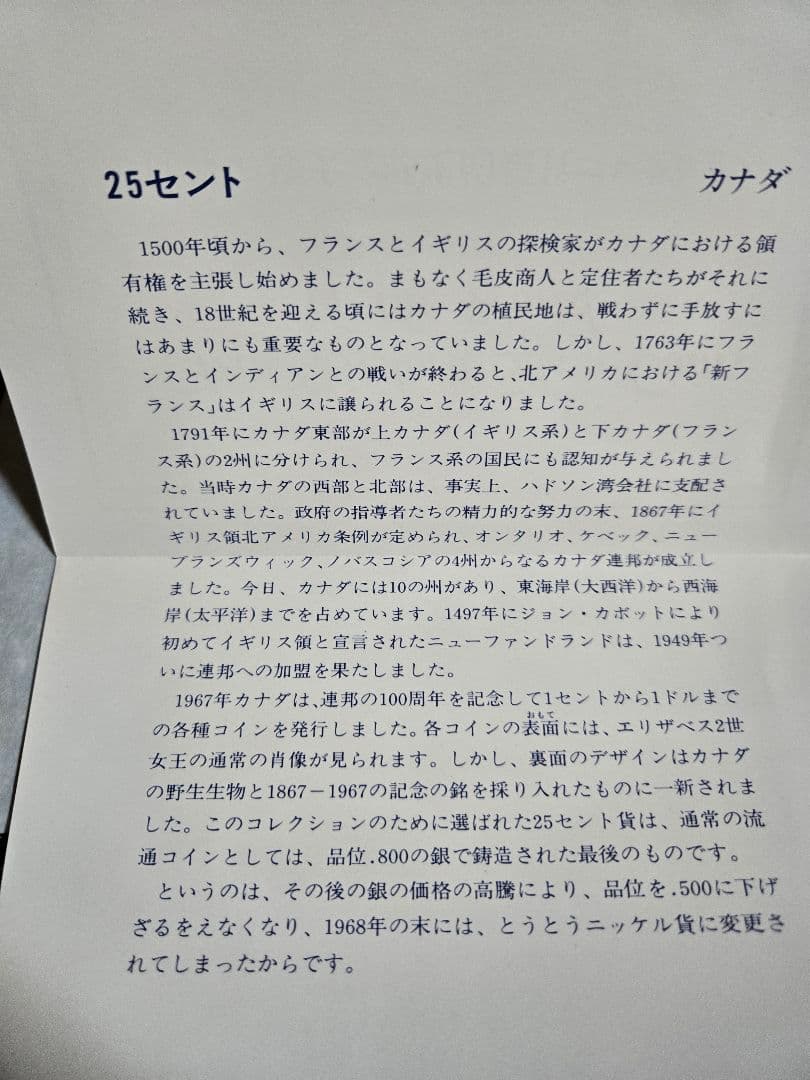 25セント
カナダ
1500年頃から、フランスとイギリスの探検家がカナダにおける領
有権を主張し始めました。まもなく毛皮商人と定住者たちがそれに
続き、18世紀を迎える頃にはカナダの植民地は、戦わずに手放すに
はあまりにも重要なものとなっていました。しかし、1763年にフラ
ンスとインディアンとの戦いが終わると、北アメリカにおける「新フ
ランス」はイギリスに譲られることになりました。
1791年にカナダ東部が上カナダ(イギリス系)と下カナダ(フラン
ス系)の2州に分けられ、フランス系の国民にも認知が与えられまし
た。当時カナダの西部と北部は、事実上、ハドソン湾会社に支配さ
れていました。政府の指導者たちの精力的な努力の末、1867年にイ
ギリス領北アメリカ条例が定められ、オンタリオ、ケベック、ニュー
ブランズウィック、ノバスコシアの4州からなるカナダ連邦が成立し
ました。今日、カナダには10の州があり、東海岸(大西洋)から西海
岸(太平洋)までを占めています。1497年にジョン・カボットにより
初めてイギリス領と宣言されたニューファンドランドは、1949年つ
いに連邦への加盟を果たしました。
1967年カナダは、連邦の100周年を記念して1セントから1ドルまで
の各種コインを発行しました。各コインの表面には、エリザベス2世
おもて
女王の通常の肖像が見られます。しかし、裏面のデザインはカナダ
の野生生物と1867−1967の記念の銘を採り入れたものに一新されま
した。このコレクションのために選ばれた25セント貨は、通常の流
通コインとしては、品位.800の銀で鋳造された最後のものです。
というのは、その後の銀の価格の高騰により、品位を.500に下げ
ざるをえなくなり、1968年の末には、とうとうニッケル貨に変更さ
れてしまったからです。